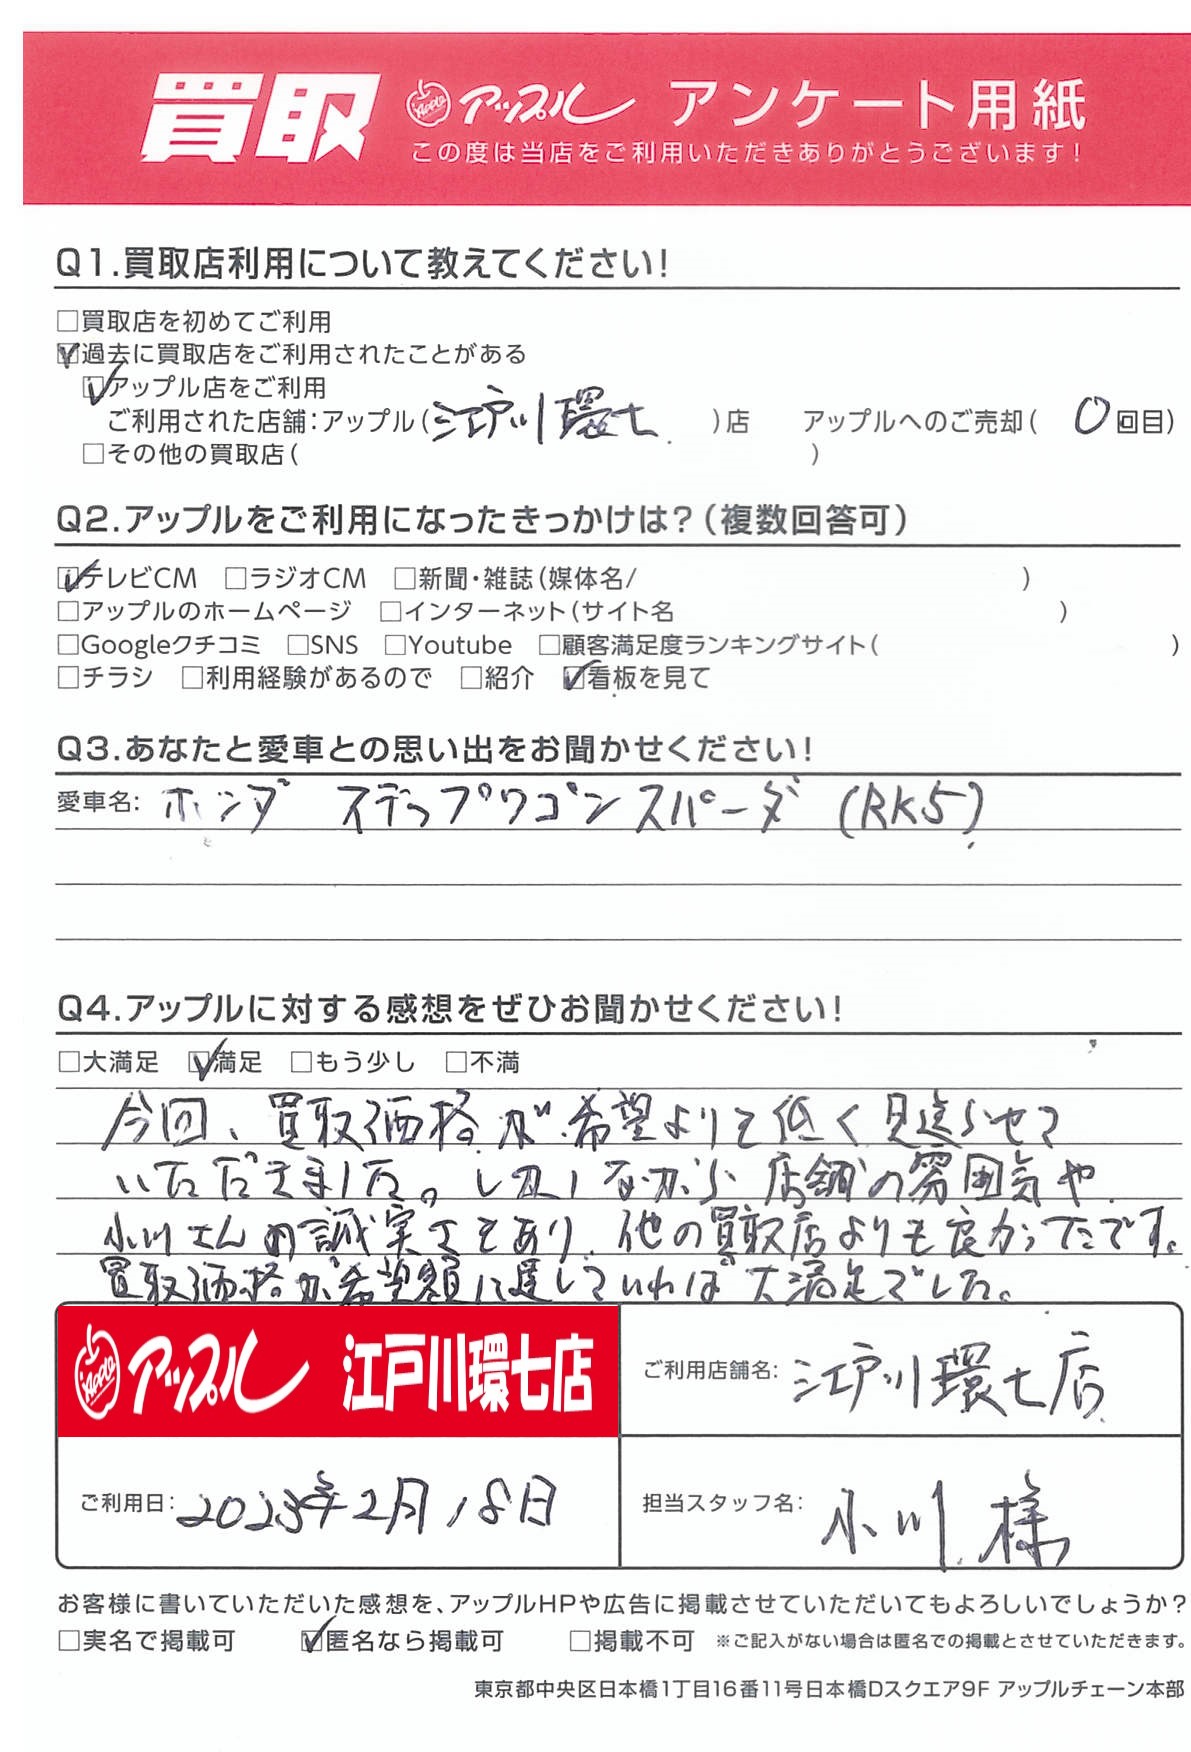 買取 アップル アンケート用紙
この度は当店をご利用いただきありがとうございます！
Q1.買取店利用について教えてください！
□買取店を初めてご利用
☑過去に買取店をご利用されたことがある
☑アップル店をご利用
ご利用された店舗：アップル（江戸川環七）店 アップルへのご売却（0回目）
□その他の買取店（ ）
Q2.アップルをご利用になったきっかけは？（複数回答可）
☑テレビCM □ラジオCM □新聞・雑誌（媒体名/ ）
□アップルのホームページ □インターネット（サイト名 ）
□Googleクチコミ □SNS □Youtube □顧客満足度ランキングサイト（ ）
□チラシ □利用経験があるので □紹介 ☑看板を見て
Q3.あなたと愛車との思い出をお聞かせください！
愛車名：ホンダ ステップワゴンスパーダ（RK5）
Q4.アップルに対する感想をぜひお聞かせください！
□大満足 ☑満足 □もう少し □不満
今回、買取価格が希望より低く見送らせて
いただきました。しかしながら店舗の雰囲気や
小川さんの誠実さもあり、他の買取店よりも良かったです。
買取価格が希望額に達していれば大満足でした。
Apple アップル 江戸川環七店
ご利用店舗名：江戸川環七店
ご利用日：2023年2月18日
担当スタッフ名：小川 様
お客様に書いていただいた感想を、アップルHPや広告に掲載させていただいてもよろしいでしょうか？
□実名で掲載可 ☑匿名なら掲載可 □掲載不可 ※ご記入がない場合は匿名での掲載とさせていただきます。
東京都中央区日本橋1丁目16番11号日本橋Dスクエア9F アップルチェーン本部